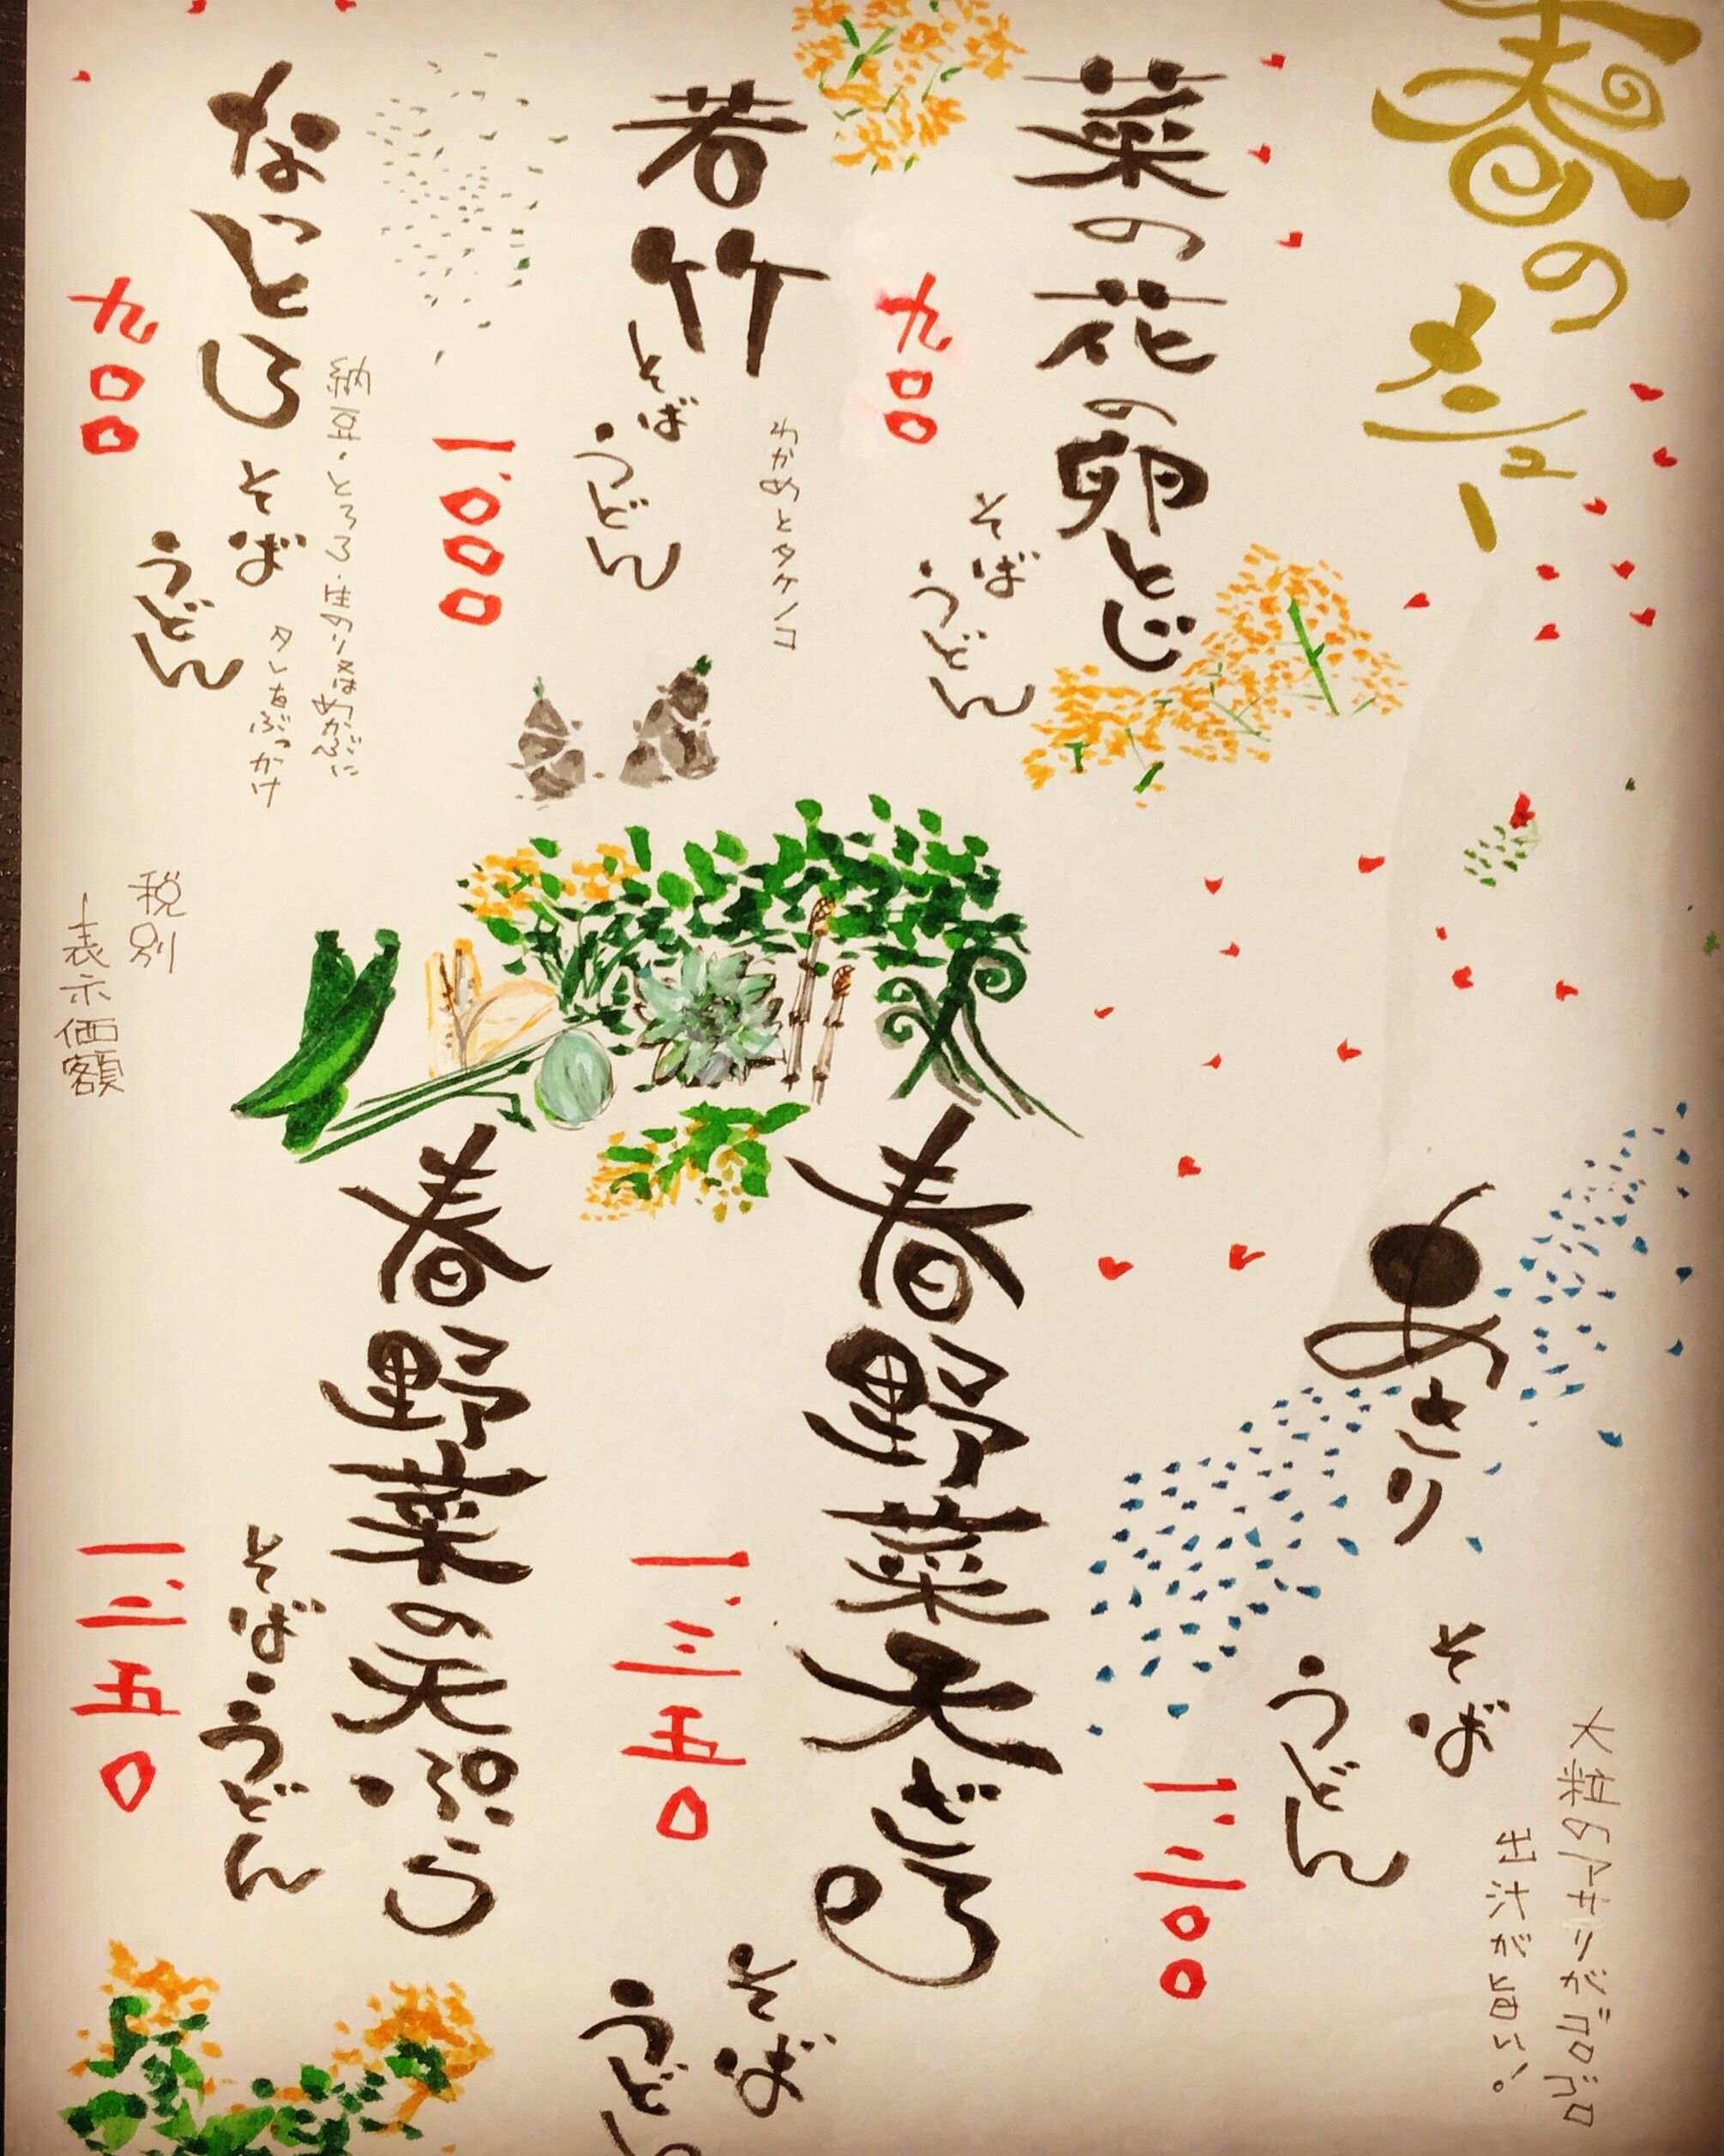 春の
メニュー
菜の花の卵とじ
そば
うどん
九〇〇
若竹
そば
うどん
わかめとタケノコ
一、〇〇〇
なっとろ
そば
うどん
納豆・とろろ・
タレをぶっかけ
九〇〇
あさり
そば
うどん
大粒のアサリがゴロゴロ
出汁が旨い。
一、二〇〇
春野菜天とろ
そば
うどん
一、三五〇
春野菜の天ぷら
そば・うどん
一、二五〇
税別
表示価額